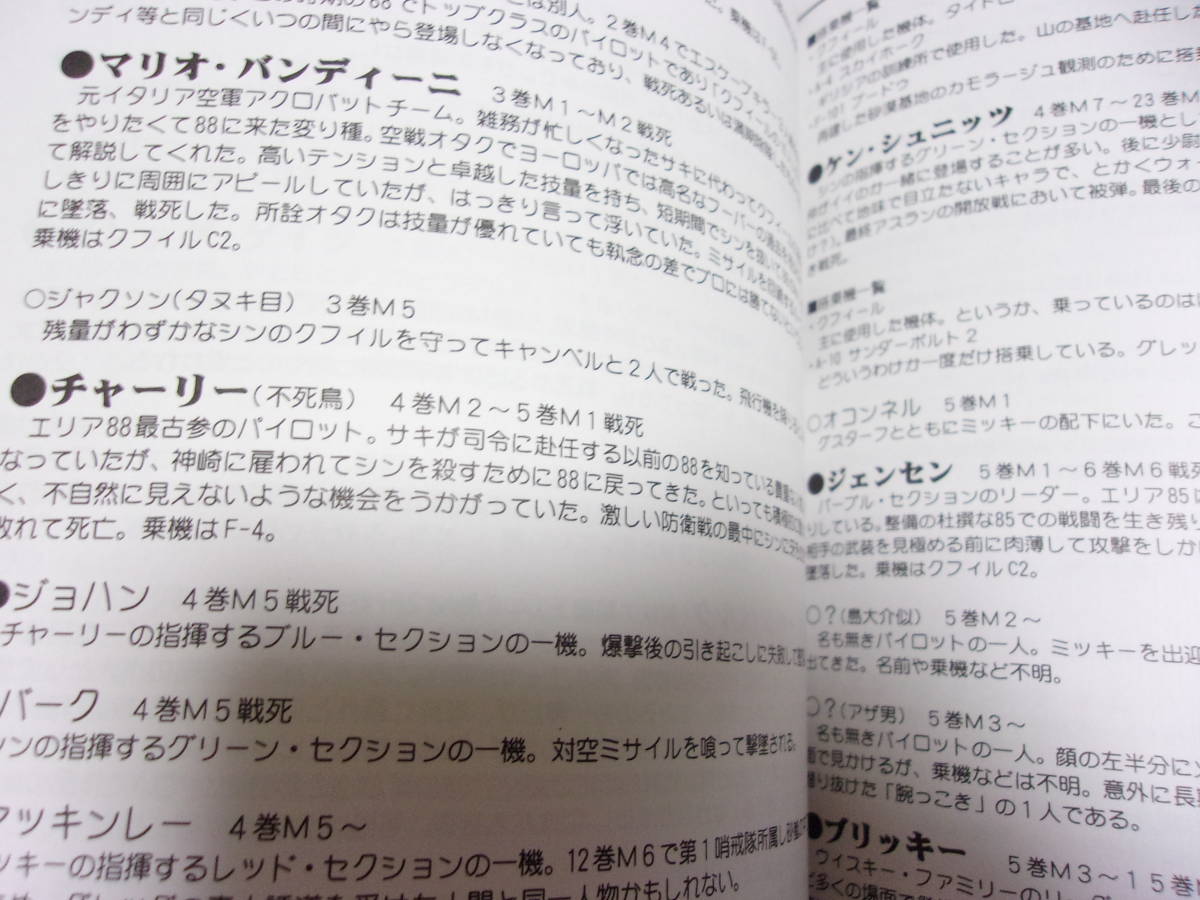 は別人。2巻M4でエスケープキラー
88でトップクラスのパイロットであり「クフィールの
ンディ等と同じくいつの間にやら登場しなくなっており、戦死あるいは満期除隊
●マリオ・バンディーニ 3巻M1～M2戦死
元イタリア空軍アクロバットチーム。雑務が忙しくなったサキに代わってクフィー
をやりたくて88に来た変り種。空戦オタクでヨーロッパでは高名なフーバーの過去を
て解説してくれた。高いテンションと卓越した技量を持ち、短期間でシンを抜いて
しきりに周囲にアピールしていたが、はっきり言って浮いていた。ミサイルを回避
に墜落、戦死した。所詮オタクは技量が優れていても執念の差でプロには勝てない
乗機はクフィルC2。
○ジャクソン(タヌキ目) 3巻M5
残量がわずかなシンのクフィルを守ってキャンベルと2人で戦った。飛行機を降り
●チャーリー(不死鳥) 4巻M2～5巻M1戦死
エリア88最古参のパイロット。サキが司令に赴任する以前の88を知っている貴重な
なっていたが、神崎に雇われてシンを殺すために88に戻ってきた。といっても積極的に
く、不自然に見えないような機会をうかがっていた。激しい防衛戦の最中にシンに
敗れて死亡。乗機はF-4。
●ジョハン 4巻M5戦死
チャーリーの指揮するブルー・セクションの一機。爆撃後の引き起こしに失敗して
バーク 4巻M5戦死
ンの指揮するグリーン・セクションの一機。対空ミサイルを喰って撃墜される。
マッキンレー 4巻M5～
ッキーの指揮するレッド・セクションの一機。12巻M6で第1哨戒隊所属し
人間と同一人物かもしれない。
■搭乗機一覧
・クフィール
主に使用した機体。タイドロ
・A-4 スカイホーク
ギリシアの訓練所で使用した。山の基地へ赴任した
・F-101 ブードゥ
再建した砂漠基地のカモフラージュ観測のために搭乗
●ケン・シュニッツ 4巻M7～23巻M
シンの指揮するグリーン・セクションの一機とし
一緒に登場することが多い。後に少尉
に比べて地味で目立たないキャラで、とかくウォー
け?)。最終アスランの開放戦において被弾。最後の
き戦死。
■搭乗機一覧
・クフィール
主に使用した機体。というか、乗っているのは
・A-10 サンダーボルト2
どういうわけか一度だけ搭乗している。グレッ
○オコンネル 5巻M1
グスターフとともにミッキーの配下にいた。こ
●ジェンセン 5巻M1～6巻M6戦死
パープル・セクションのリーダー。エリア85
りしている。整備の杜撰な85での戦闘を生き残り
相手の武装を見極める前に肉薄して攻撃をしか
墜落した。乗機はクフィルC2。
○?(島大介似) 5巻M2～
名も無きパイロットの一人。ミッキーを出迎
出てきた。名前や乗機など不明。
○?(アザ男) 5巻M3～
名も無きパイロットの一人。顔の左半分に
面で見かけるが、乗機などは不明。意外に長
り抜けた「腕っこき」の1人である。
●ブリッキー 5巻M3～15巻M
ウイスキー・ファミリーのリーダ
ど多くの場面で